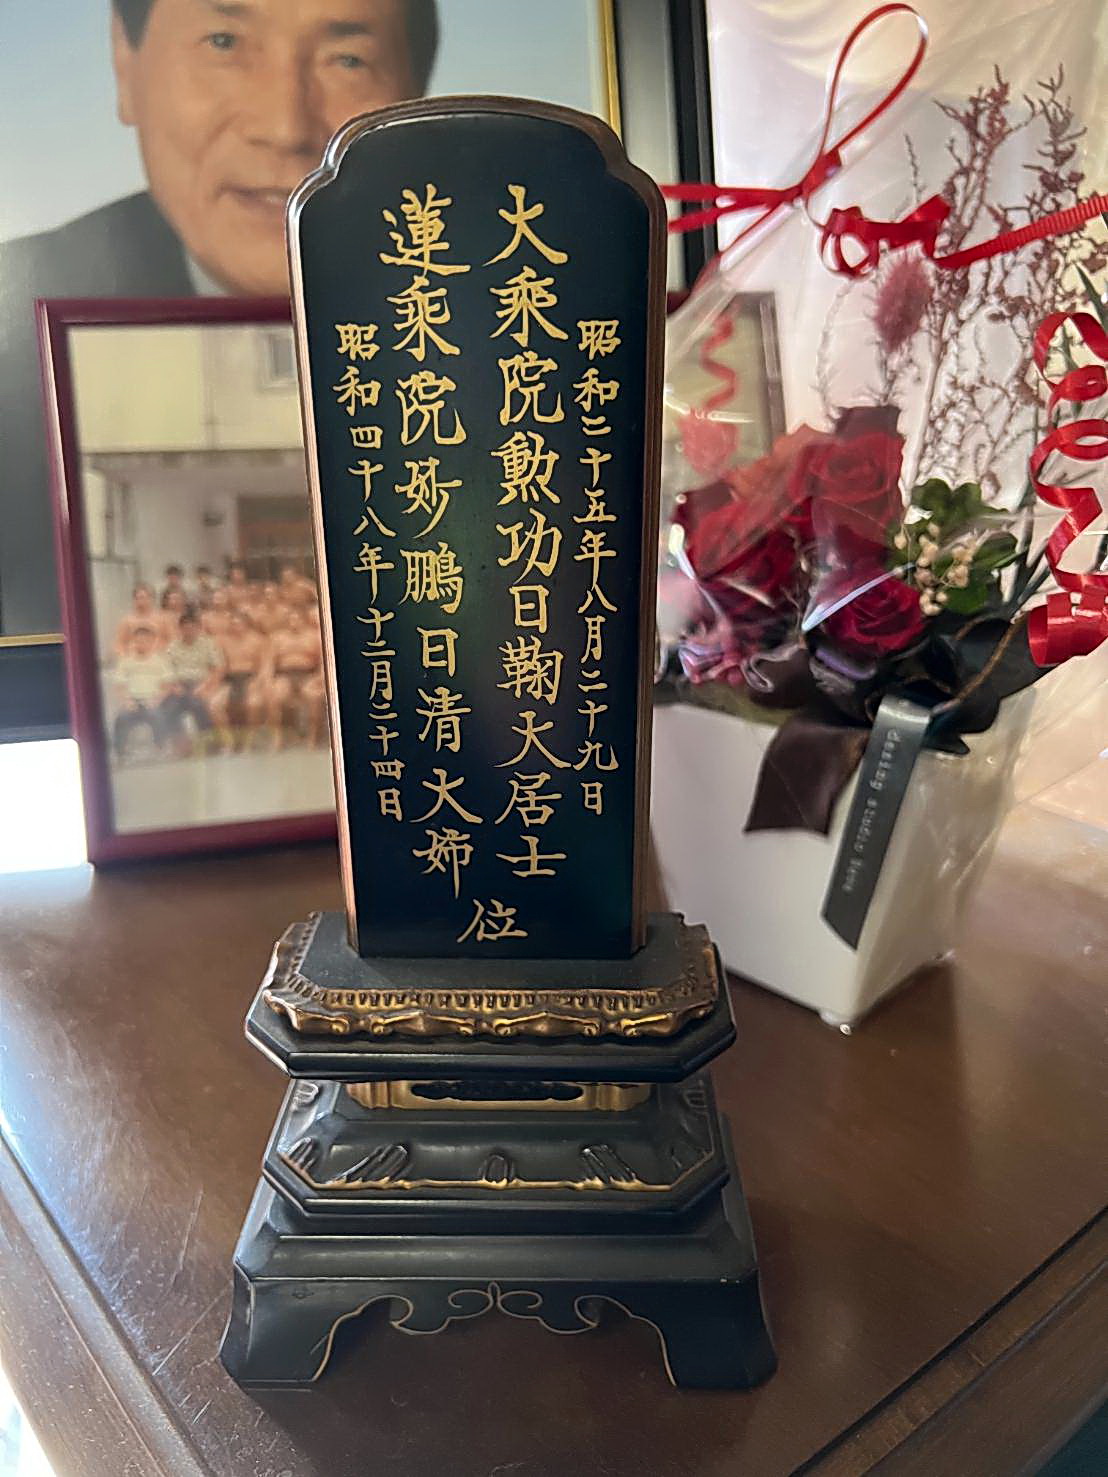 昭和二十五年八月二十九日
大乘院勲功日鞠大居士
蓮乘院妙鵬日清大姉
昭和四十八年十二月二十四日
位